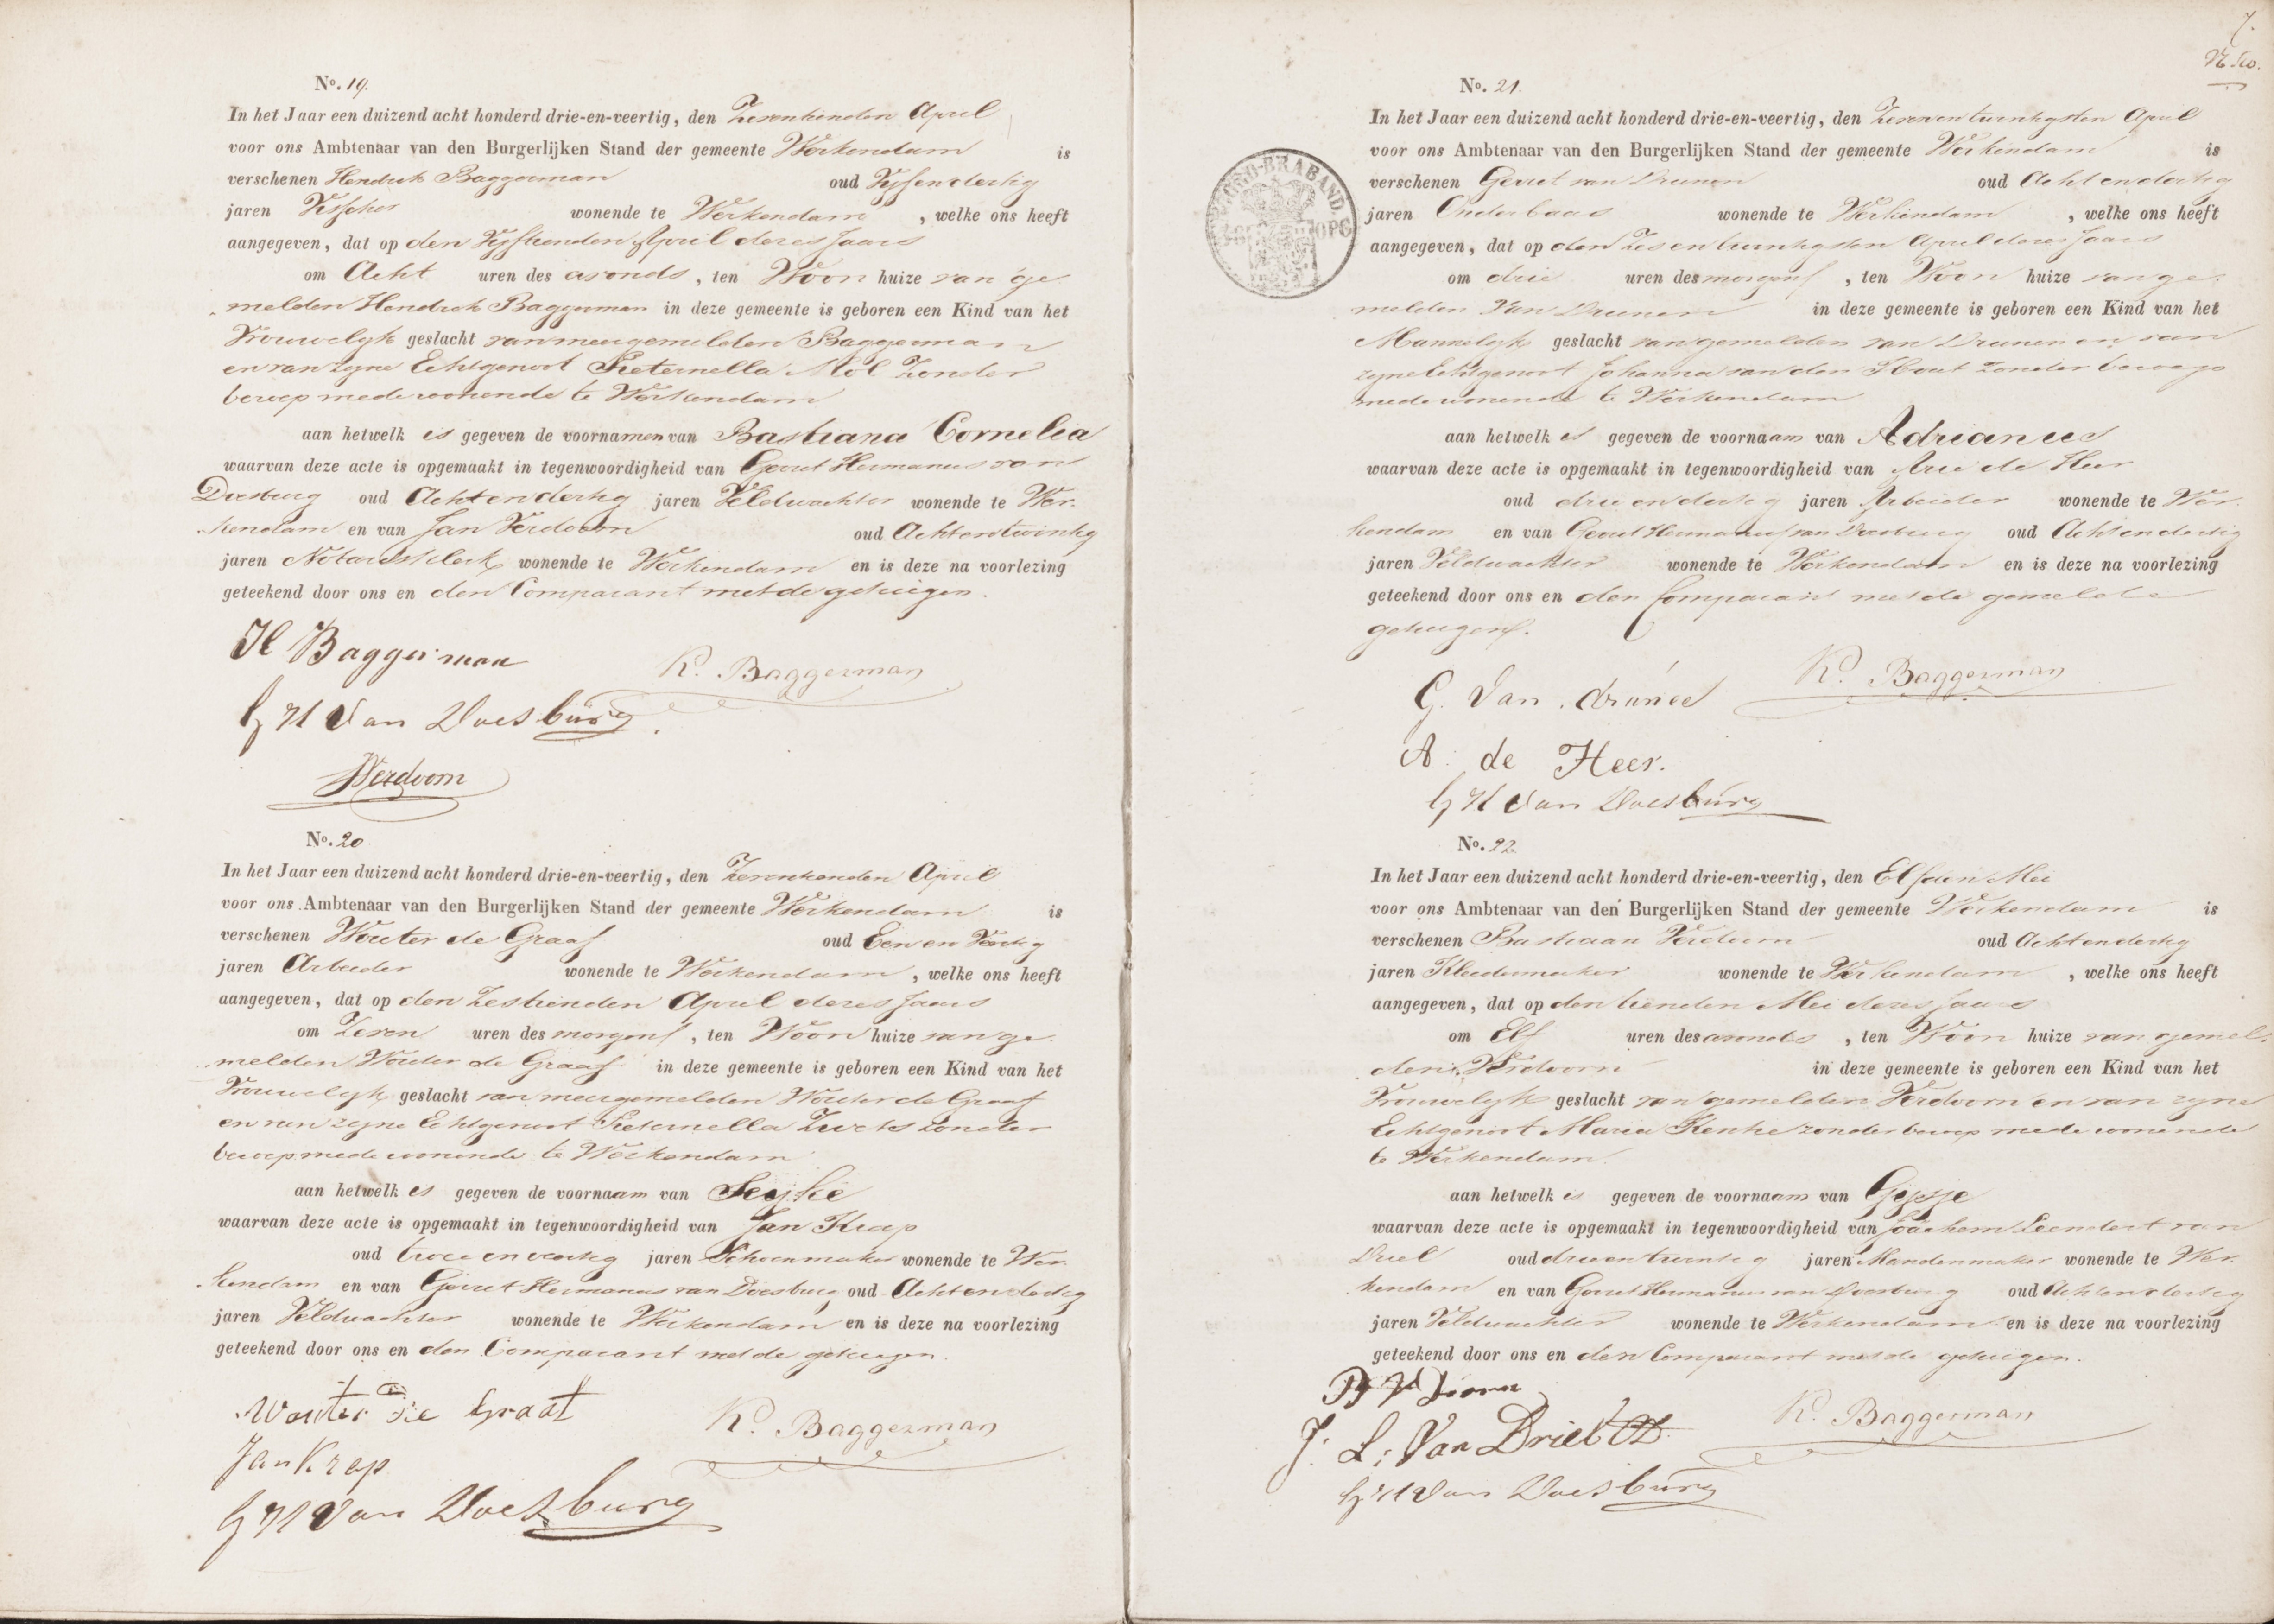 No. 19.
In het Jaar een duizend acht honderd drie-en-veertig, den Zeventienden April
voor ons Ambtenaar van den Burgerlijken Stand der gemeente Werkendam is
verschenen Hendrik Baggerman oud Vyfendertig
jaren Visscher wonende te Werkendam, welke ons heeft
aangegeven, dat op den Vyftienden April dezes Jaars
om Acht uren des avonds, ten Woon huize van ge
melden Hendrik Baggerman in deze gemeente is geboren een Kind van het
Vrouwelyk geslacht van meergemelden Baggerman
en van zyne Echtgenoot Pieternella Mol Zonder
beroep mede wonende te Werkendam
aan hetwelk is gegeven de voornamen van Bastiana Cornelia
waarvan deze acte is opgemaakt in tegenwoordigheid van Gerrit Hermanus van
Doesburg oud Achtendertig jaren Veldwachter wonende te Wer-
kendam en van Jan Verdoorn oud Achtentwintig
jaren Notarisklerk wonende te Werkendam en is deze na voorlezing
geteekend door ons en den Comparant met de getuigen.
H Baggerman
K. Baggerman
G H Van Doesburg.
JVerdoorn
No. 20
In het Jaar een duizend acht honderd drie-en-veertig, den Zeventienden April
voor ons Ambtenaar van den Burgerlijken Stand der gemeente Werkendam is
verschenen Wouter de Graaf oud Een en Veertig
jaren Arbeider wonende te Werkendam, welke ons heeft
aangegeven, dat op den Zestienden April dezes Jaars
om Zeven uren des morgens, ten Woon huize van ge
melden Wouter de Graaf in deze gemeente is geboren een Kind van het
Vrouwelyk geslacht van meergemelden Wouter de Graaf
en van zyne Echtgenoot Pieternella zonder
beroep mede wonende te Werkendam
aan hetwelk is gegeven de voornaam van
waarvan deze acte is opgemaakt in tegenwoordigheid van Jan Krap
oud twee en veertig jaren Schoenmaker wonende te Wer
kendam en van Gerrit Hermanus van Doesburg oud Achtendertig
jaren Veldwachter wonende te Werkendam en is deze na voorlezing
geteekend door ons en den Comparant met de getuigen.
Wouter De Graaf
K. Baggerman
Jan Krap
G H Van Doesburg
7.
No. 21.
In het Jaar een duizend acht honderd drie-en-veertig, den Zevenentwintigsten April
voor ons Ambtenaar van den Burgerlijken Stand der gemeente Werkendam is
verschenen Gerrit van Drunen oud Achtendertig
jaren Onderbaas wonende te Werkendam, welke ons heeft
aangegeven, dat op den Zesentwintigsten April dezes Jaars
om drie uren des morgens, ten Woon huize van ge-
melden Van Drunen in deze gemeente is geboren een Kind van het
Mannelyk geslacht van gemelden van Drunen en van
zyne Echtgenoot Johanna van den Hout zonder beroep
mede wonende te Werkendam
aan hetwelk is gegeven de voornaam van Adrianus
waarvan deze acte is opgemaakt in tegenwoordigheid van Arie de Heer
oud drie en dertig jaren Arbeider wonende te Wer
kendam en van Gerrit Hermanus van Doesburg oud Achtendertig
jaren Veldwachter wonende te Werkendam en is deze na voorlezing
geteekend door ons en den Comparant met de gemelde
getuigen.
G. Van drunen
K. Baggerman
A. de Heer.
G H Van Doesburg
No. 22
In het Jaar een duizend acht honderd drie-en-veertig, den Elfden Mei
voor ons Ambtenaar van den Burgerlijken Stand der gemeente Werkendam is
verschenen Bastiaan Verdoorn oud Achtendertig
jaren Kleedermaker wonende te Werkendam, welke ons heeft
aangegeven, dat op den tienden Mei dezes jaars
om Elf uren des avonds, ten Woon huize van gemel
den Verdoorn in deze gemeente is geboren een Kind van het
Vrouwelyk geslacht van gemelden Verdoorn en van zyne
Echtgenoot Maria zonder beroep mede wonende
te Werkendam.
aan hetwelk is gegeven de voornaam van
waarvan deze acte is opgemaakt in tegenwoordigheid van Joachem Leendert van
Driel oud drieentwintig jaren Mandenmaker wonende te Wer
kendam en van Gerrit Hermanus van Doesburg oud Achtendertig
jaren Veldwachter wonende te Werkendam en is deze na voorlezing
geteekend door ons en den Comparant met de getuigen.
K. Baggerman
J. L. Van Driel
G H Van Doesburg